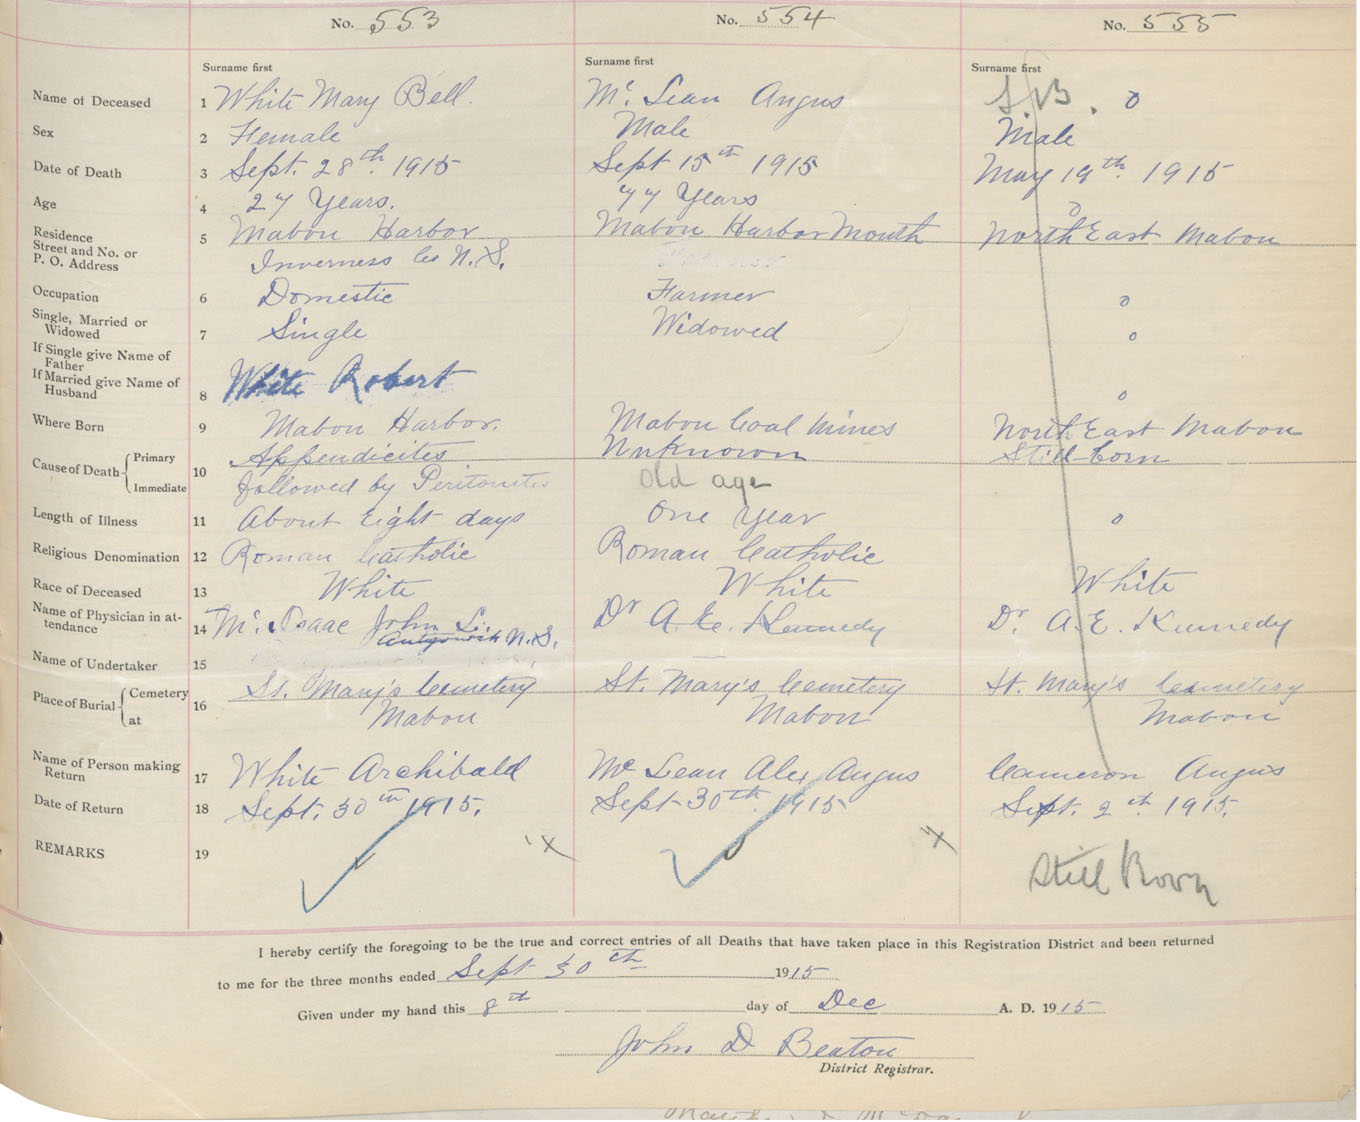 No. 553
No. 554
No. 555
Surname first
Surname first
Surname first
Name of Deceased 1 White Mary Bell. Mc. Lean Angus S/B. o
Sex 2 Female Male Male
Date of Death 3 Sept. 28th. 1915 Sept 15th 1915 May 19th. 1915
Age 4 27 Years. 77 Years o
Residence
Street and No. or
P. O. Address
5 Mabou Harbor Mabou Harbor Mouth North East Mabou
Inverness Co N.S.
Occupation 6 Domestic Farmer o
Single, Married or
Widowed
7 Single Widowed o
If Single give Name of
Father
If Married give Name of
Husband
8 White Robert o
Where Born 9 Mabou Harbor. Mabou Coal Mines North East Mabou
Cause of Death Primary Immediate 10
Appendicites Unknown Still-born
followed by Peritonites Old age
Length of Illness 11 About Eight days One Year o
Religious Denomination 12 Roman Catholic Roman Catholic
Race of Deceased 13 White White White
Name of Physician in at-
tendance
14 Mc. Isaac John L. Dr A. E. Kennedy Dr. A. E. Kennedy
Antigonish N.S.
Name of Undertaker 15
Place of Burial Cemetery at 16
St. Mary's Cemetery St. Mary's Cemetery St. Mary's Cemetery
Mabou Mabou Mabou
Name of Person making
Return
17 White Archibald Mc Lean Alex Angus Cameron Angus
Date of Return 18 Sept. 30th 1915. Sept 30th. 1915 Sept. 2th 1915.
REMARKS 19 Still Born
I hereby certify the foregoing to be the true and correct entries of all Deaths that have taken place in this Registration District and been returned
to me for the three months ended Sept 30th 1915
Given under my hand this 8th day of Dec A. D. 1915
John D Beaton
District Registrar.